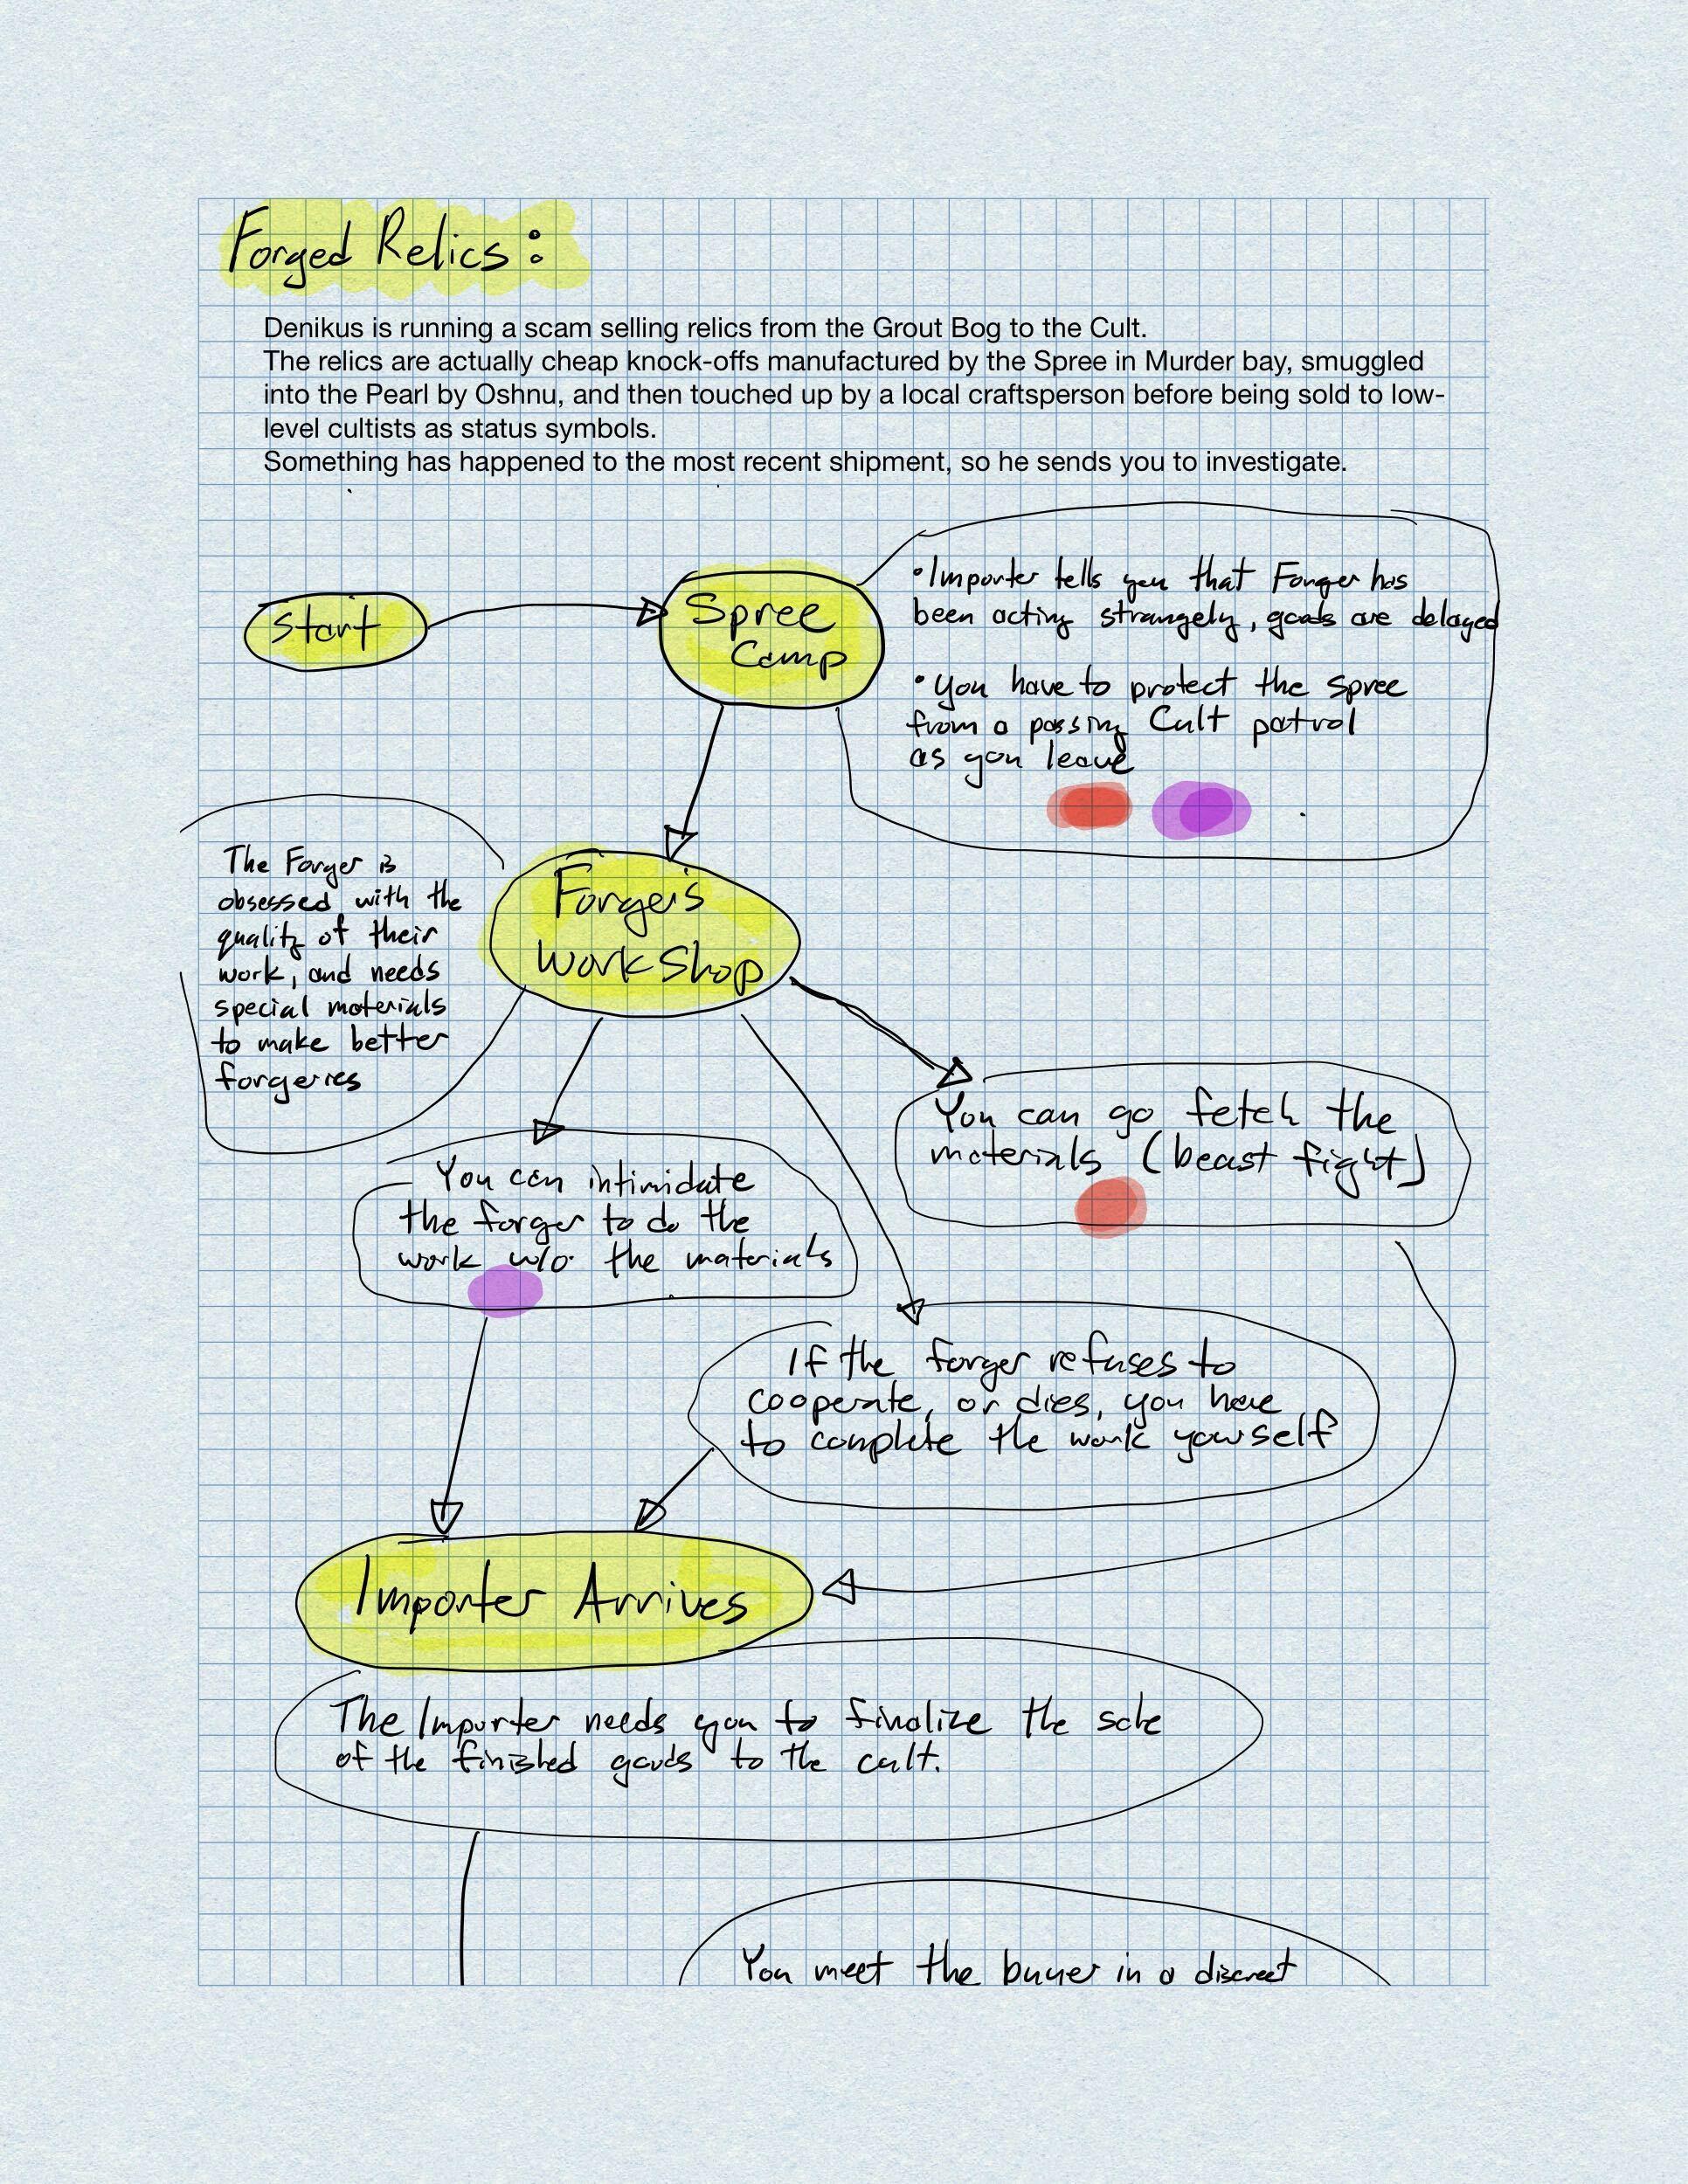 Forged Relics:
Denikus is running a scam selling relics from the Grout Bog to the Cult.
The relics are actually cheap knock-offs manufactured by the Spree in Murder bay, smuggled
into the Pearl by Oshnu, and then touched up by a local craftsperson before being sold to low-
level cultists as status symbols.
Something has happened to the most recent shipment, so he sends you to investigate.
Start
Spree
Camp
• Importer tells you that Forger has
been acting strangely, goods are delayed
• You have to protect the Spree
from a passing Cult patrol
as you leave
Forger's
Workshop
The Forger is
obsessed with the
quality of their
work, and needs
special materials
to make better
forgeries
You can go fetch the
materials (beast fight)
You can intimidate
the forger to do the
work w/o the materials
If the forger refuses to
cooperate, or dies, you have
to complete the work yourself
Importer Arrives
The Importer needs you to finalize the sale
of the finished goods to the cult.
You meet the buyer in a discreet